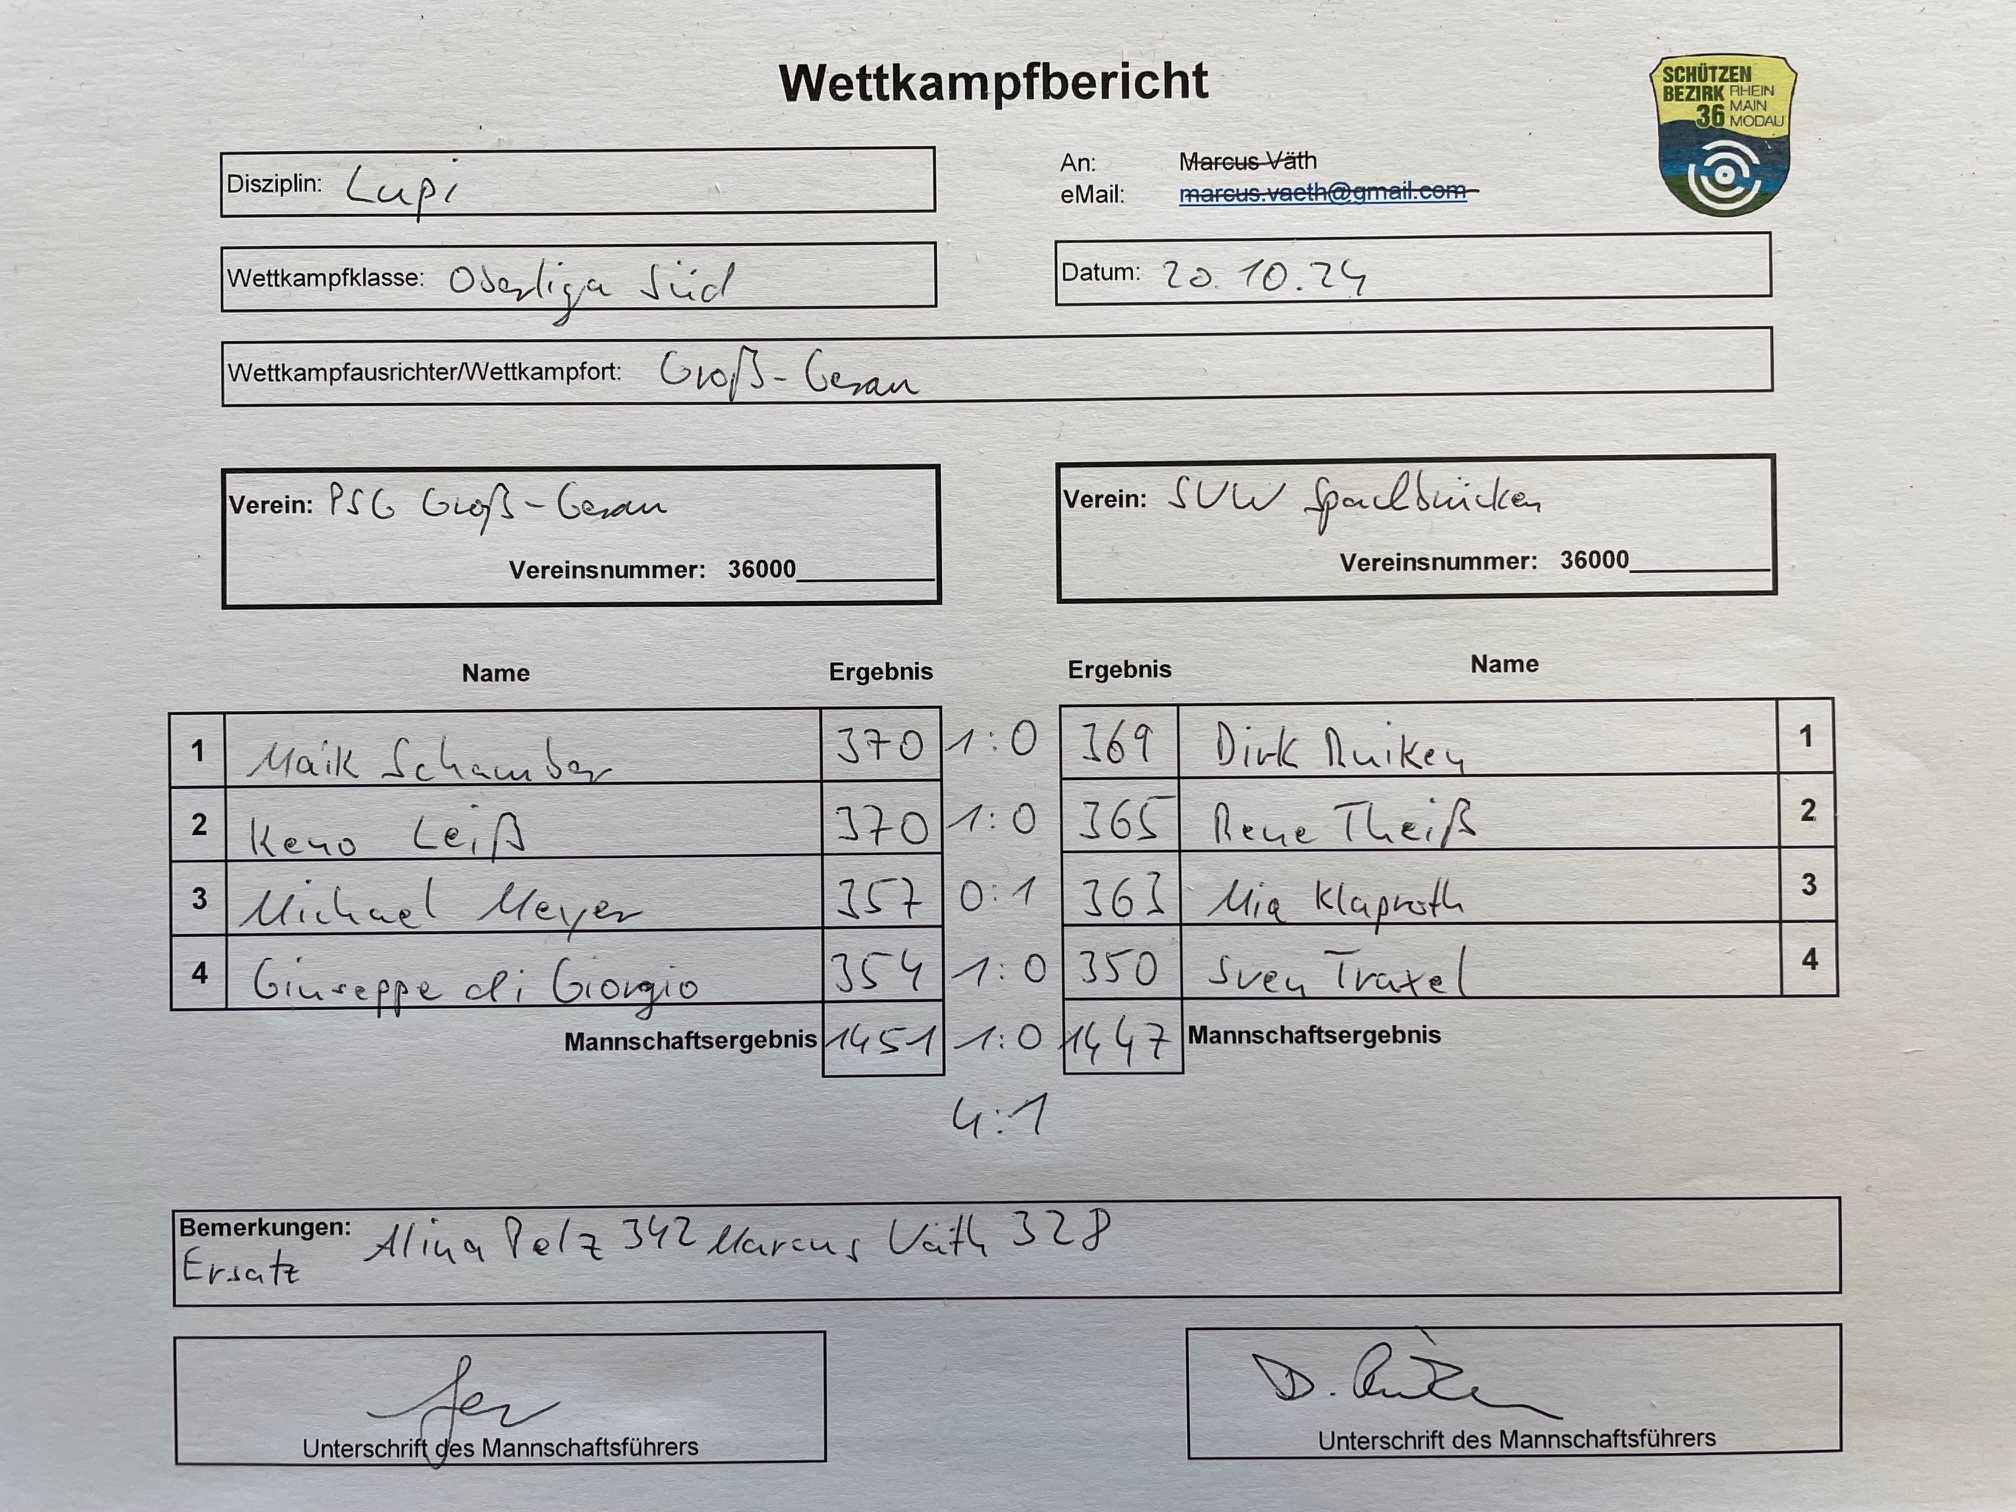 Wettkampfbericht
SCHÜTZEN
BEZIRK RHEIN
36 MAIN
MODAU
Disziplin: Lupi
An: Marcus Väth
eMail: marcus.vaeth@gmail.com
Wettkampfklasse: Oberliga Süd
Datum: 20.10.24
Wettkampfausrichter/Wettkampfort: Groß-Gerau
Verein: PSG Groß-Gerau
Vereinsnummer: 36000
Verein: SVW Spachbrücken
Vereinsnummer: 36000
Name Ergebnis Ergebnis Name
1 Maik Schamber 370 1:0 369 Dirk Ruiken 1
2 Keno Leiß 370 1:0 365 Rene Theiß 2
3 Michael Meyer 357 0:1 363 Mia Klaproth 3
4 Giuseppe di Giorgio 354 1:0 350 Sven Traxel 4
Mannschaftsergebnis 1451 1:0 1447 Mannschaftsergebnis
4:1
Bemerkungen: Alina Pelz 342 Marcus Väth 328
Ersatz
D. Ruiken
Unterschrift des Mannschaftsführers
Unterschrift des Mannschaftsführers